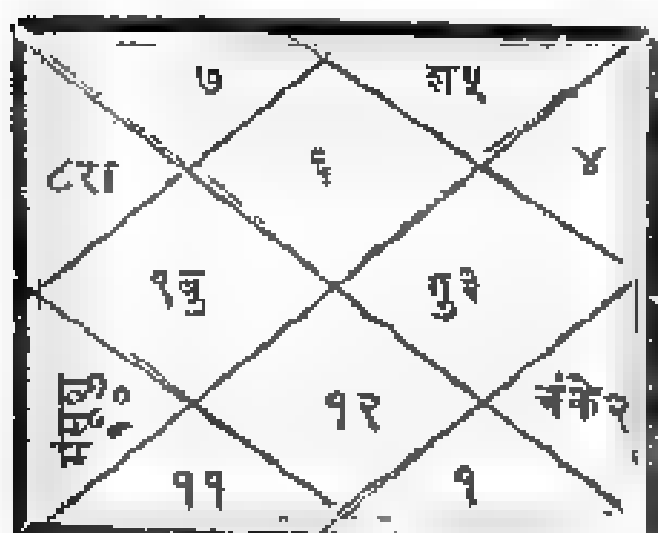 ७
श५
८रा
६
४
९बु
गु३
मंसूशु१०
१२
चंके२
११
१